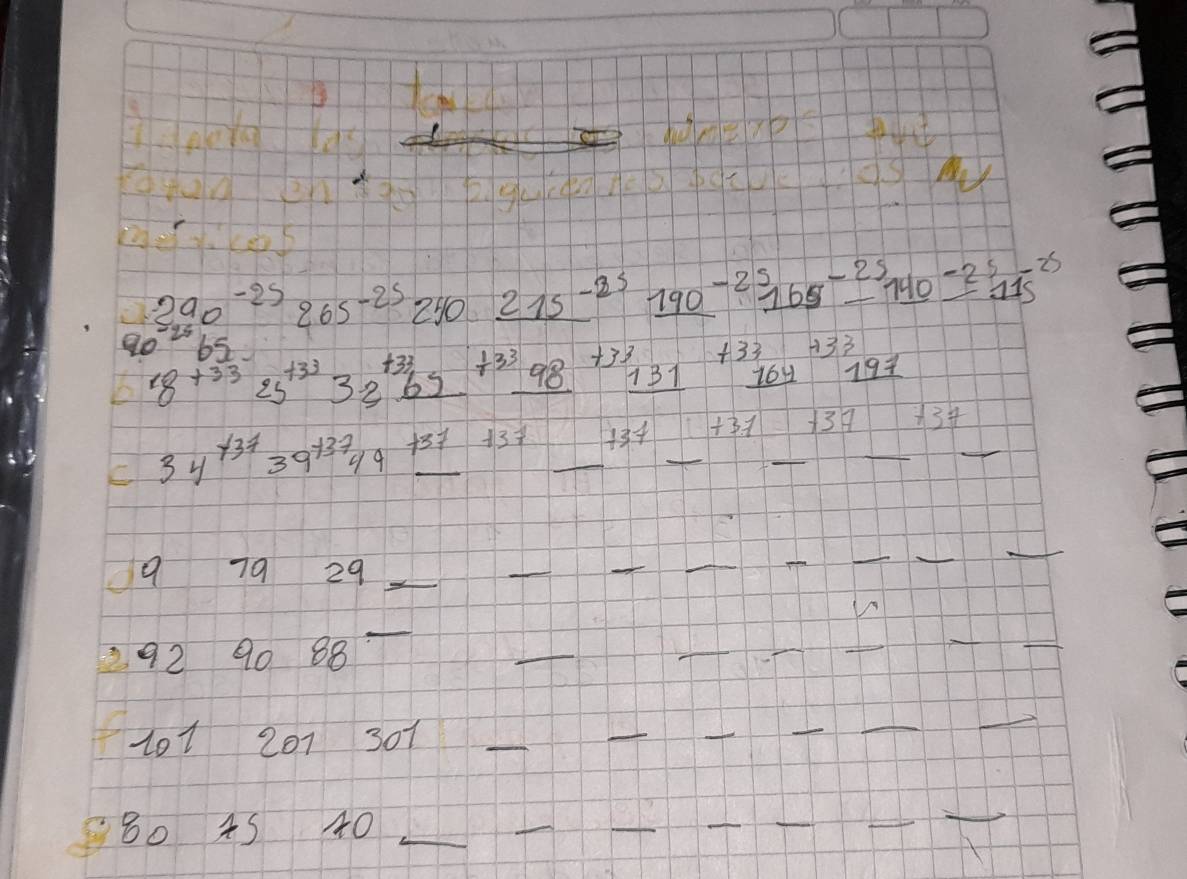 las números que
en las siguientes
méricos
a 290 -25 265 -25 240 215 -25 190 -25 165 -25 140 -25 115 -25
90 -25 65
b 18 +33 25 +33 32 +33 65 +33 98 +33 131 +33 164 +33 197
c 34 +37 39 +37 44 +37 _ +37 _ +37 _ +37 _ +37 _ +37 _
d 9 19 29 _ _ _ _ _ _ _ _
e 92 90 88 _ _ _ _ _ _ _
f 101 201 301 _ _ _ _ _ _
g 80 75 70 _ _ _ _ _ _ _